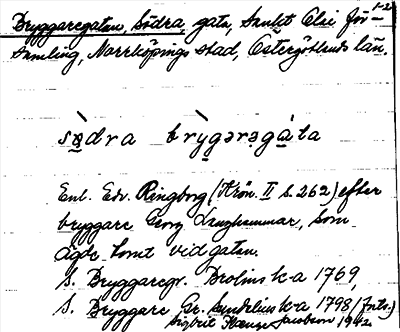 1-2
Bryggaregatan, Södra, gata, Sankt Olai för-
samling, Norrköpings stad, Östergötlands län.
sødra brỳgərəgàta
Enl. Edv. Ringborg (Krön. II s. 262) efter
bryggare Georg Langhammar, som
ägde tomt vid gatan.
S. Bryggaregr. Brolins k-a 1769,
S. Bryggare Gr. Lundelius k-a 1798 (forts.)
Sigbrit Jacobson 1942